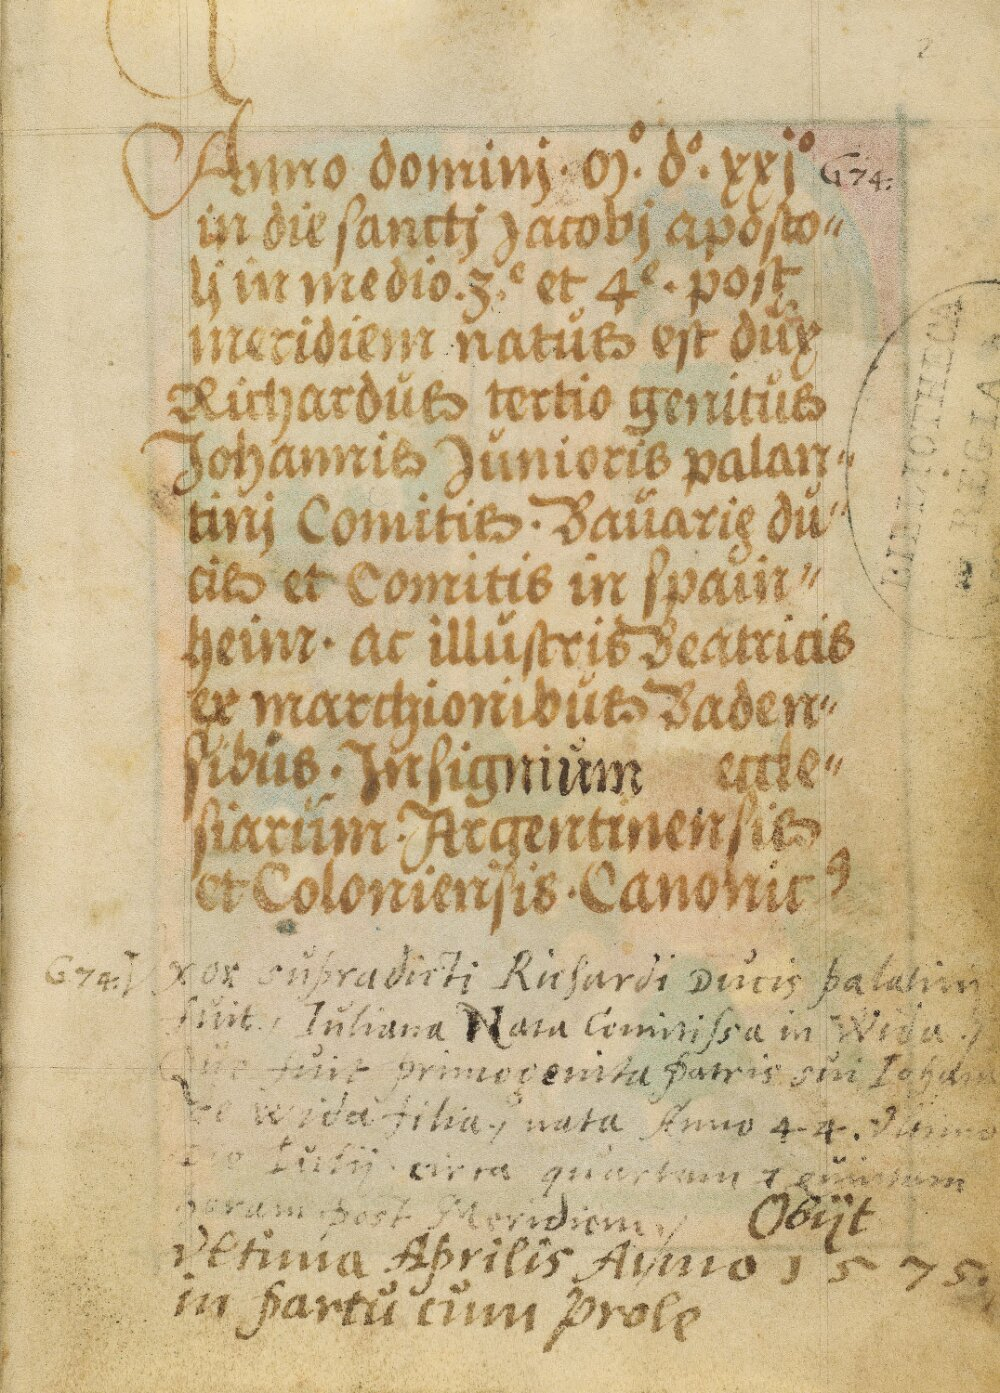 2
Anno dominj. M°. d°. xxj° G74:
in die sanctj Jacobj aposto"
lj in medio. 3.e et 4e. post
meridiem natus est dux
Richardus tertio genitus
Johannis Junioris palan"
tinj Comitis. Bavarię du"
cis et Comitis in spain"
heim. ac illustris Beatricis
ex marchionibus Baden"
sibus. Insignium eccle"
siarum. Argentinensis
et Coloniensis. Canonic9
G74: Vxor supradicti Richardi Ducis palatini
fuit, Iuliana Nata Comitissa in Wida
Que fuit primogenita patris sui Iohan
de Wida filia, nata Anno 44. Vltimo
Die Iulij circa quartam & quintam
horam post Meridiem, Obijt
vltima Aprilis Anno 1575.
in partu cum prole
BIBLIOTHECA
REGIA